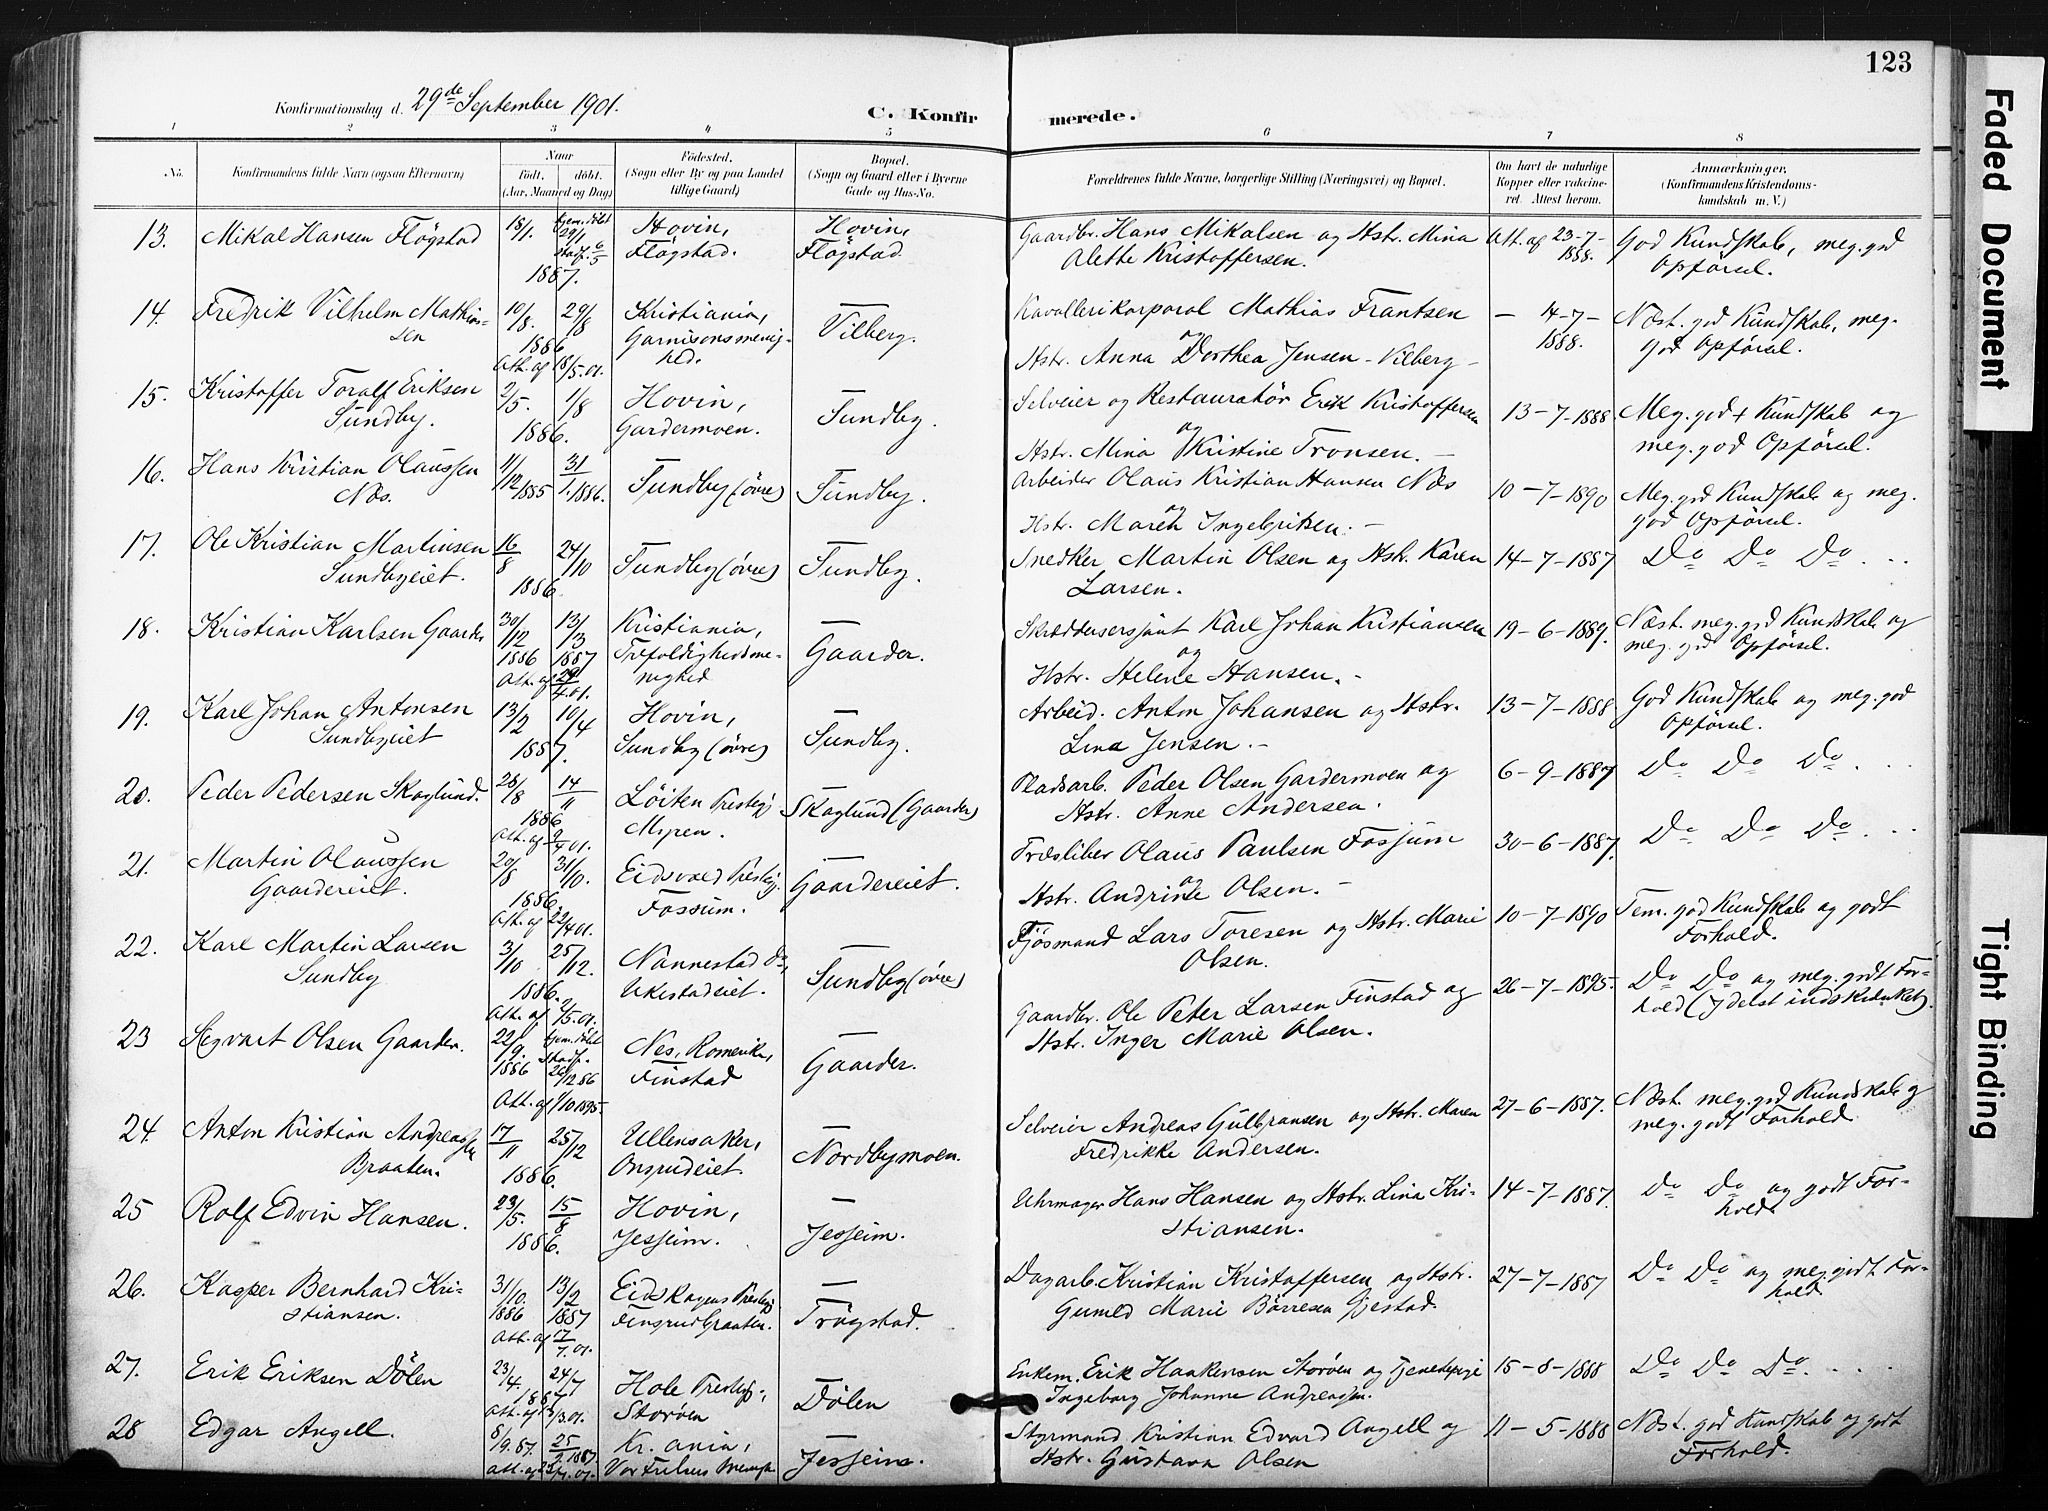 123
Konfirmationsdag d. 29de September 1901.
C. Konfirmerede.
1 2 3 4 5 6 7 8
No.
Konfirmandens fulde Navn (ogsaa Efternavn)
Naar
født. døbt.
(Aar, Maaned og Dag)
Födested.
(Sogn eller By og paa Landet
tillige Gaard)
Bopæl.
(Sogn og Gaard eller i Byerne
Gade og Hus-No.
Forældrenes fulde Navne, borgerlige Stilling (Næringsvei) og Bopæl.
Om havt de naturlige
Kopper eller vakcine-
ret. Attest herom.
Anmærkninger.
(Konfirmandens Kristendoms-
kundskab m. V.)
13. Mikal Hansen Flögstad
18/1. hjem. döbt 29/1 Stadf. 6/5
1887.
Hovin,
Flögstad.
Hovin,
Flögstad.
Gaardbr. Hans Mikalsen og Hstr. Mina
Alette Kristoffersen.
Ath. af 23-7-
1888.
God Kundskab, meg. god
Opförsel.
14. Fredrik Vilhelm Mathias-
sen
10/8. 29/8
1886
Ath. af 18/5.01.
Kristiania,
Garnisonsmenig-
hed.
— Vilberg.
Kavallerikorporal Mathias Frantsen
og
Hstr. Anna Dorthea Jensen - Vilberg -
— 4-7-
1888.
Næst. god Kundskab, meg.
god Opförsel.
15. Kristoffer Toralf Eriksen
Sundby.
2/5. 1/8
1886.
Hovin,
Gardermoen.
— Sundby.
Selveier og Restauratör Erik Kristoffersen
og
Hstr. Mina Kristine Tronsen. —
13-7-1888
Meg. god + Kundskab og
meg. god Opförsel.
16. Hans Kristian Olaussen
Næs.
11/12 1885 31/1. 1886.
Sundby (övre)
— Sundby.
Arbeider Olaus Kristian Hansen Næs
og
Hstr. Maren Ingebritsen. —
10-7-1890
Meg. god Kundskab og meg.
god Opförsel.
17. Ole Kristian Martinsen
Sundbyeiet.
16/8 24/10
1886
Sundby (övre)
— Sundby.
Snedker Martin Olsen og Hstr. Karen
Larsen.
14-7-1887
Do Do Do ...
18. Kristian Karlsen Gaarder
30/12 13/3
1886 1887
Ath. af 29/4.01.
Kristiania,
Trefoldighedsme-
nighed
— Gaarder.
Skræddersersjant Karl Johan Kristiansen
og
Hstr. Helene Hansen. -
19-6-1889.
Næst. meg. god Kundskab og
meg. god Opförsel.
19. Karl Johan Antonsen
Sundbyeiet
13/2 10/4
1887.
Hovin,
Sundby (övre)
— Sundby.
Arbeid. Anton Johansen og Hstr.
Lina Jensen. -
13-7-1888
God Kundskab og meg. god
Opförsel.
20. Peder Pedersen Skoglund.
28/8 14/11
1886
Ath. af 9/4 01.
Löiten Prestegj.
Myren.
— Skoglund (Gaarder)
Pladsarb. Peder Olsen Gardermoen og
Hstr. Anne Andersen.
6-9-1887
Do Do Do ...
21. Martin Olaussen
Gaardereiet.
20/8 31/10.
1886.
Ath. af 22/4 01.
Eidsvold Prestegj.
Fossum.
— Gaardereiet.
Træsliber Olaus Paulsen Fossum
og
Hstr. Andrine Olsen. —
30-6-1887.
Do Do Do ...
22. Karl Martin Larsen
Sundby
3/10 25/12.
1886.
Ath. af 2/5.01.
Nannestad Do,
Ukestadeiet.
— Sundby (övre)
Fjösmand Lars Toresen og Hstr. Marie
Olsen.
10-7-1890
Tem. god Kundskab og godt
Forhold.
23 Sigvart Olsen Gaarder.
22/9. hjem. döbt Stadf. 26/12 86
1886
Ath. af 1/10 1895.
Nes, Romerike,
Finstad
— Gaarder.
Gaardbr. Ole Peter Larsen Finstad og
Hstr. Inger Marie Olsen.
26-7-1895.
Do Do og meg. godt For-
hold (Yderst indskrænket).
24. Anton Kristian Andreassen
Braaten.
17/11 25/12
1886.
Ullensaker,
Onsrudeiet.
— Nordbymoen.
Selveier Andreas Gulbransen og Hstr. Maren
Fredrikke Andersen.
27-6-1887.
Næst. meg. god Kundskab og
meg. godt Forhold.
25 Rolf Edvin Hansen.
23/5. 15/8
1886.
Hovin,
Jessheim.
— Jessheim.
Uhrmager Hans Hansen og Hstr. Lina Kri-
stiansen.
14-7-1887.
Do Do og godt For-
hold
26. Kasper Bernhard Kri-
stiansen.
31/10. 13/2
1886 1887
Ath. af 17/7.01.
Eidskogens Prestegj.
Finsrudbraaten.
— Trögstad.
Dagarb. Kristian Kristoffersen og Hstr.
Gunild Marie Börresen Gjestad.
27-7-1887
Do Do og meg. godt For-
hold
27. Erik Eriksen Dölen
23/4. 24/7
1887
Ath. af 13/3.01.
Hole Prestegj.,
Storöen
— Dölen
Enkem. Erik Haakensen Storöen og Tjenestepige
Ingeborg Johanne Andreassen.
15-8-1888
Do Do Do. ...
28 Edgar Angell.
8/9.87. 25/9 1887
Kr.ania,
Vor Frelsers Menigh.
— Jessheim.
Styrmand Kristian Edvard Angell og
Hstr. Gustava Olsen
11-5-1888
Næst. god Kundskab og godt
Forhold.
Faded Document
Tight Binding